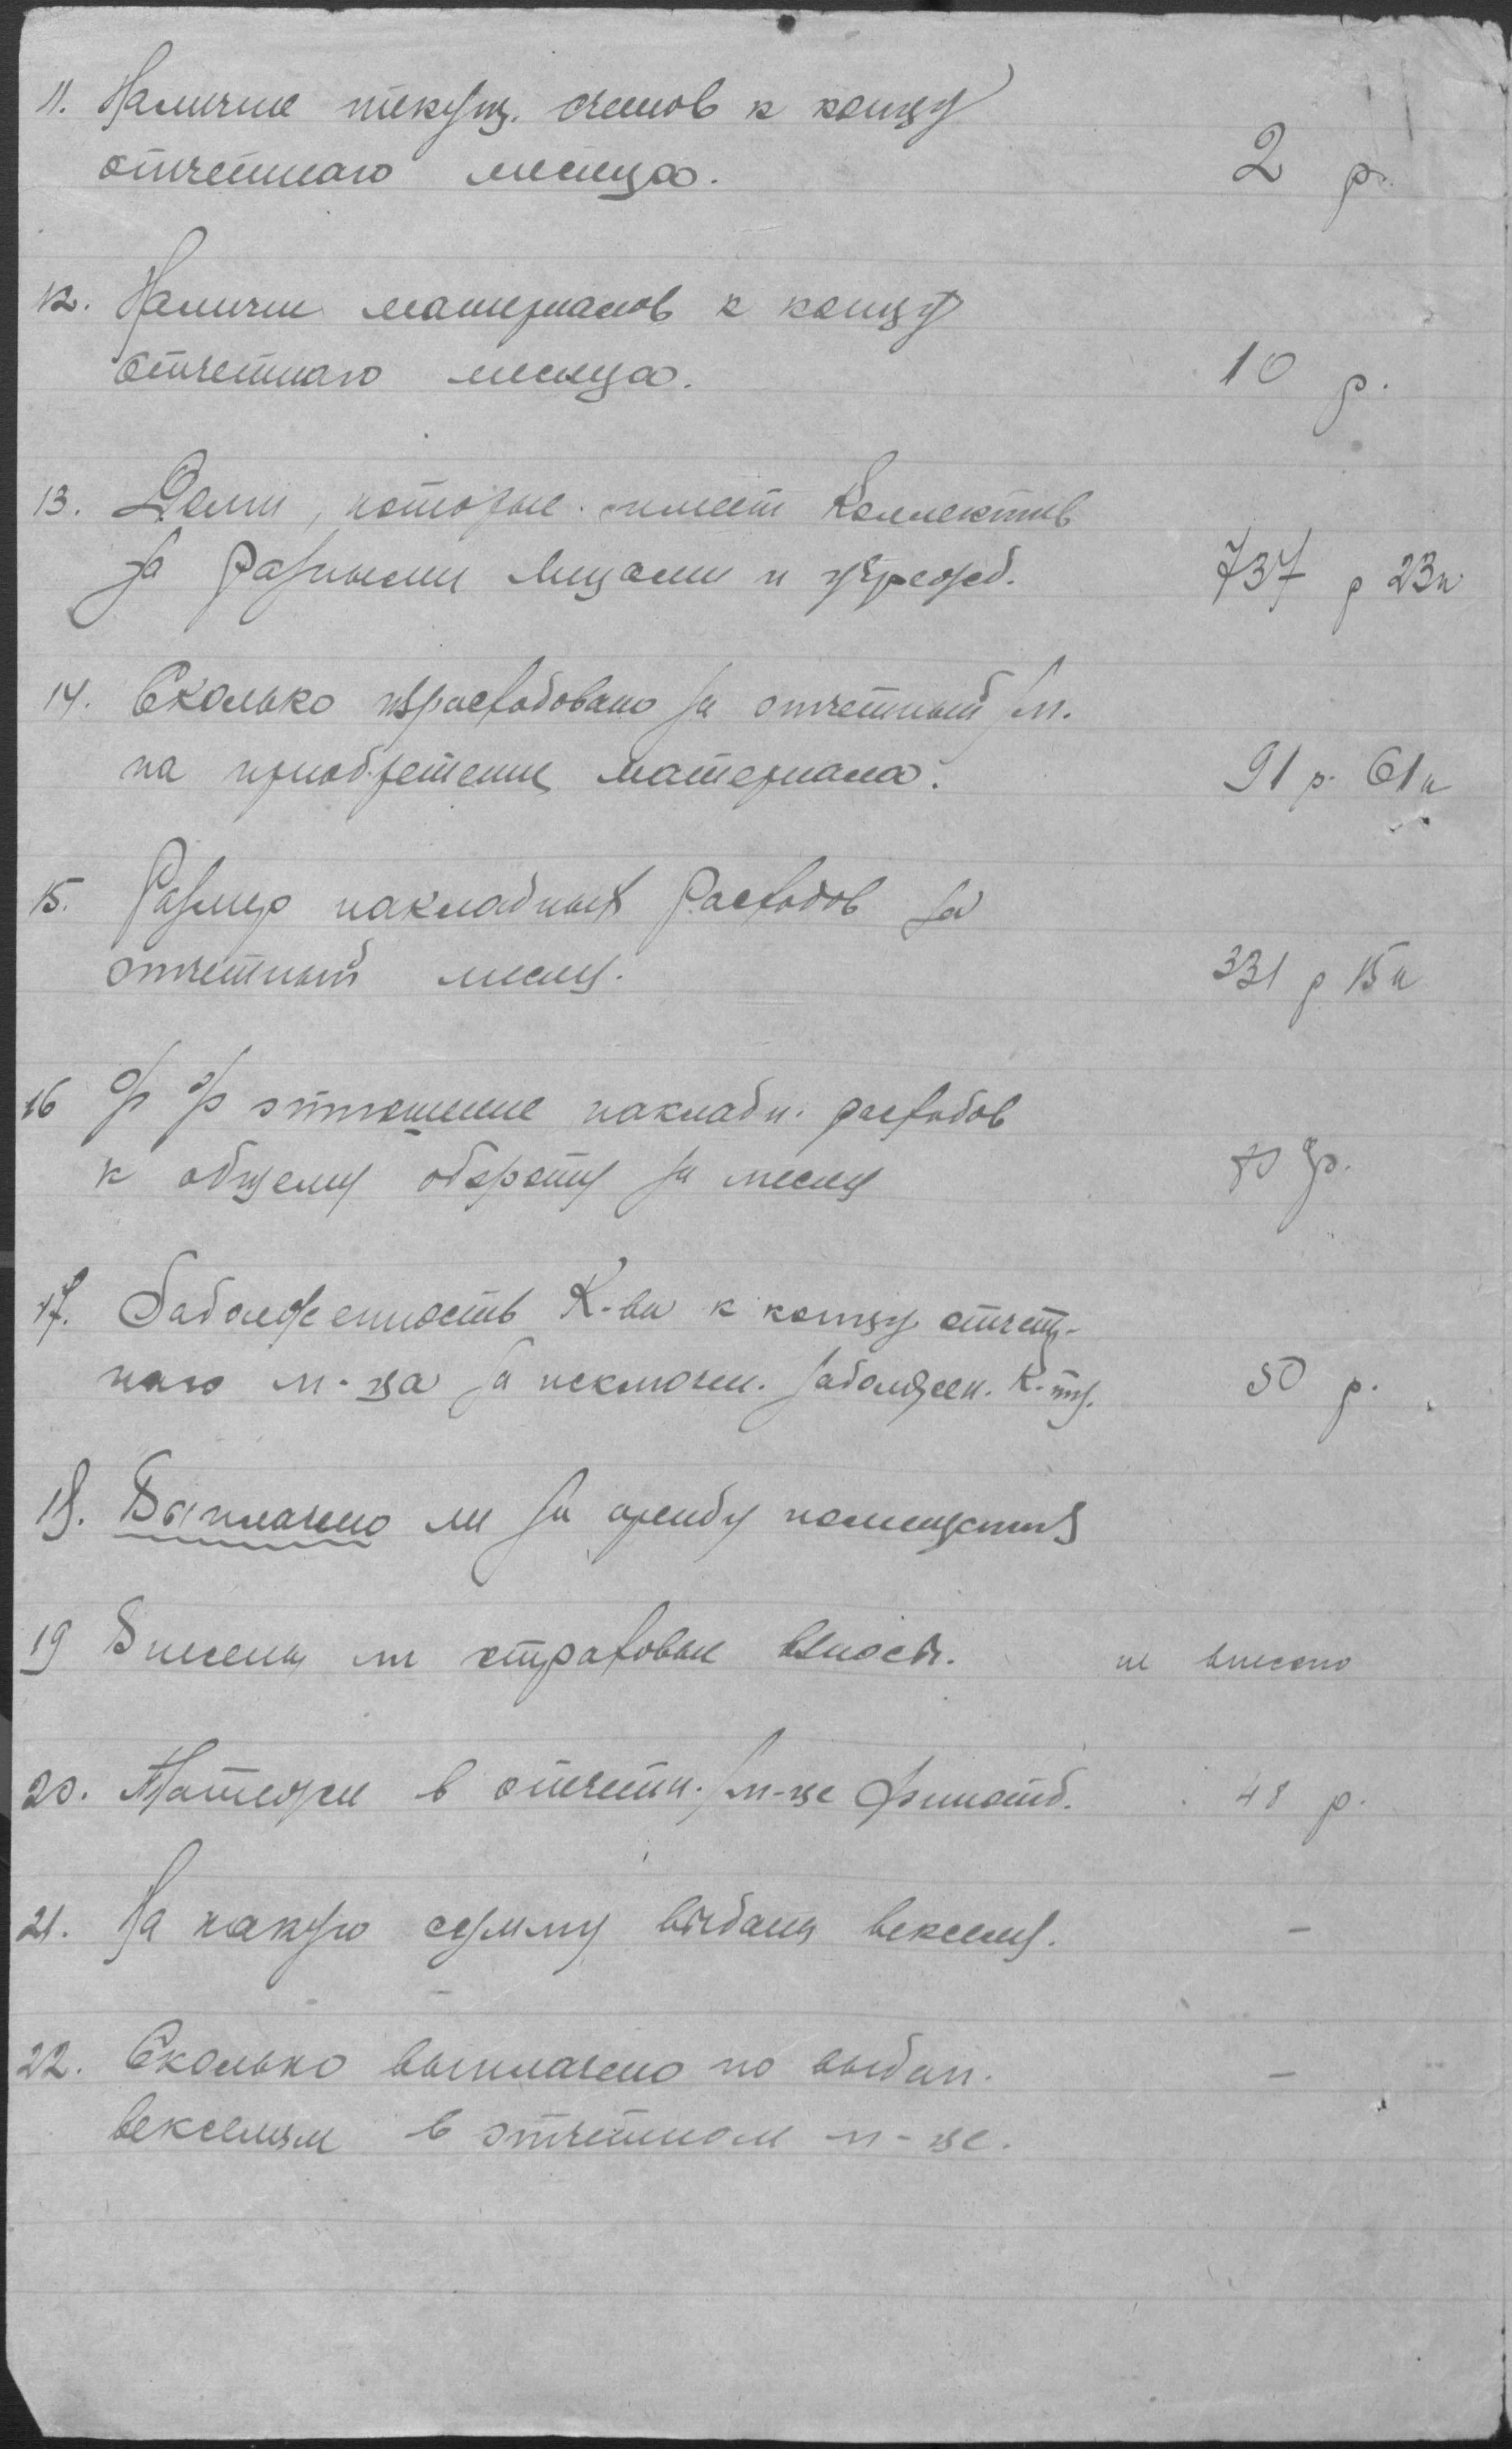 11. Наличие текущ. счетов к концу
отчетнаго месяца. 2 р.
12. Наличие материалов к концу
отчетнаго месяца. 10 р.
13. Долги, которые имеет Коллектив
за разными лицами и учрежд. 737 р 23 к
14. Сколько израсходовано за отчетный м.
на приобретение материала. 91 р. 61 к
15. Размер накладных расходов за
отчетный месяц. 331 р 15 к
16 % % отношение накладн. расходов
к общему обороту за месяц
17. Задолженность К-ва к концу отчет-
наго м-ца за исключен. задолжен. К-ту. 50 р.
18. Выплачено ли за аренду помещения
19 Внесены ли страховые взносы. не внесено
20. Платежи в отчетн. м-це финотд. 48 р.
21. На какую сумму выданы векселя. –
22. Сколько выплачено по выдан. –
векселям в отчетном м-це.